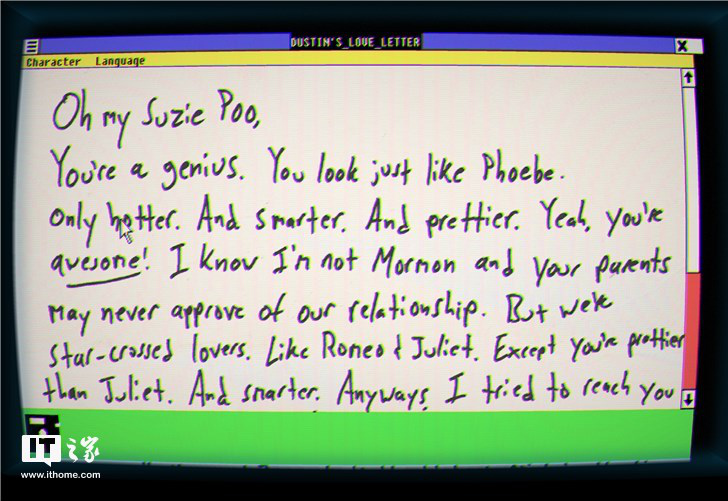 DUSTIN'S_LOVE_LETTER
Character Language
Oh my Suzie Poo,
You're a genius. You look just like Phoebe.
Only hotter. And smarter. And prettier. Yeah, you're
awesome! I know I'm not Mormon and your parents
may never approve of our relationship. But we're
star-crossed lovers. Like Romeo & Juliet. Except you're prettier
than Juliet. And smarter. Anyways, I tried to reach you
IT之家
www.ithome.com